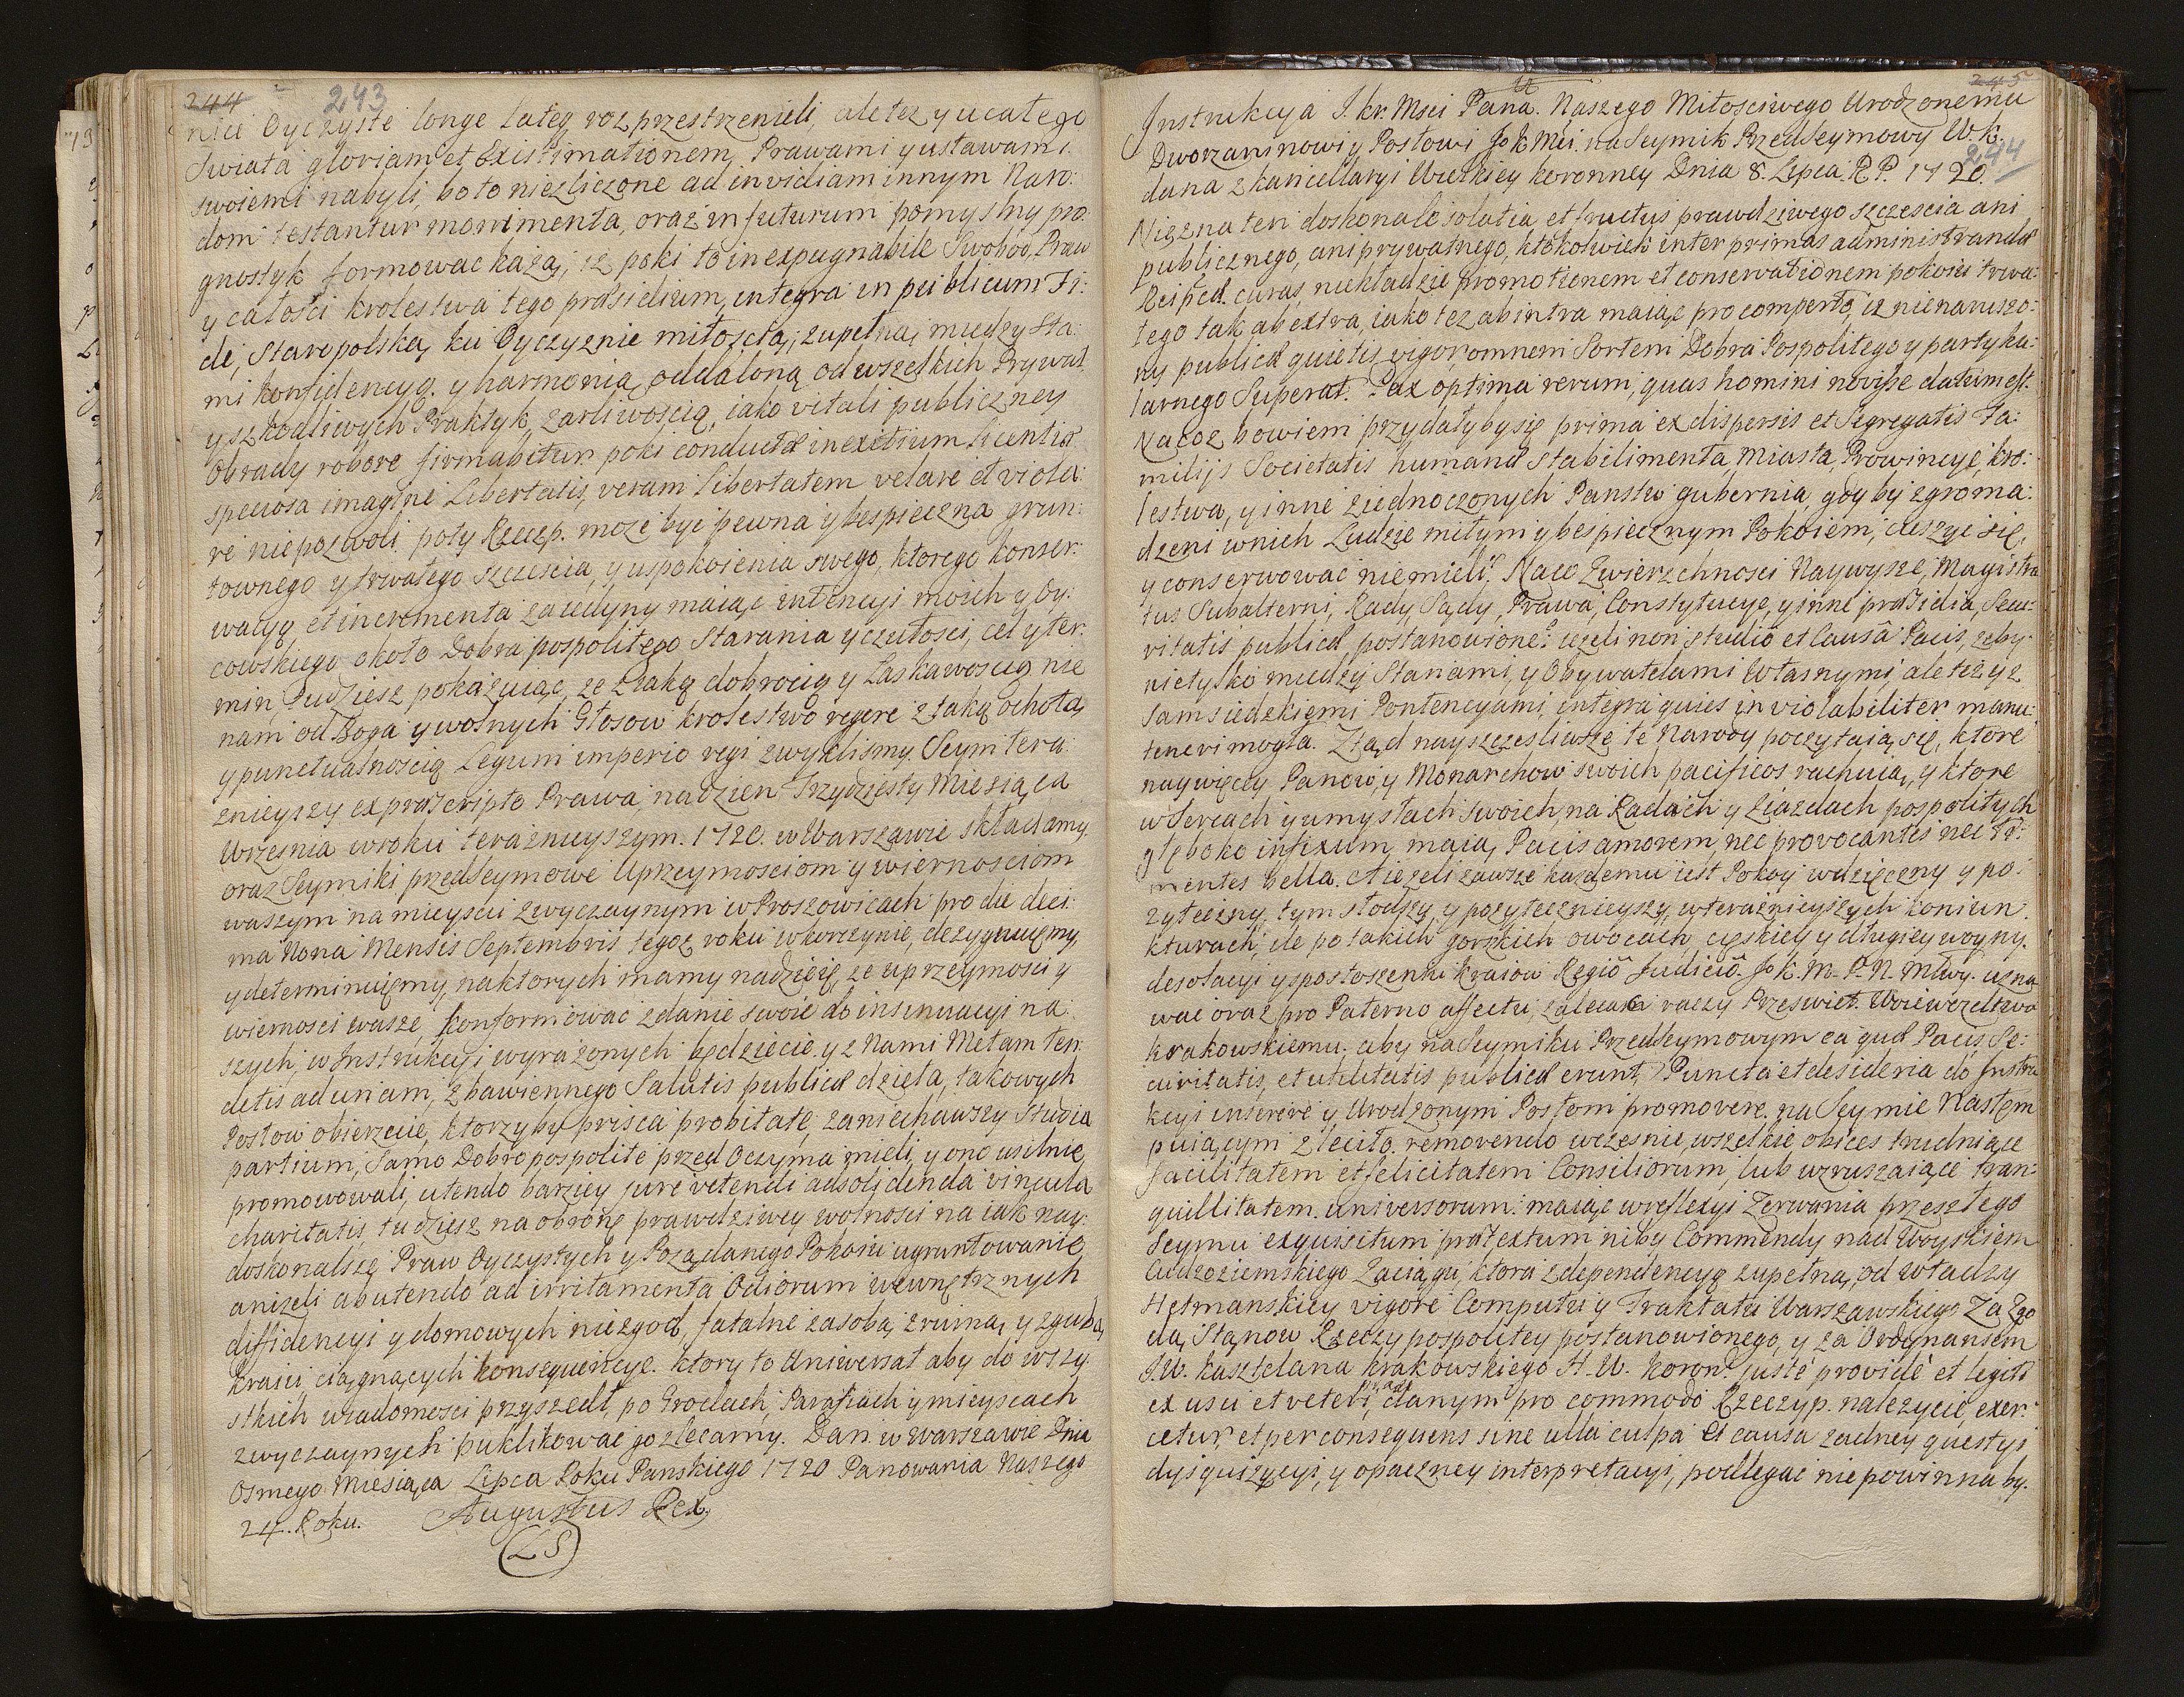 244 243
nice Oyczyste longe lateq rozprzestrzenieli, ale tez y u całego
Swiata gloriam et Existimationem, Prawami y ustawami
swoiemi nabyli, bo to niezliczone ad invidiam innym Naro:
dom testantur monimenta, oraz in futurum pomyslny pro:
gnostyk formowac każą, iz poki to inexpugnabile Swobod, Praw
y całości Krolestwa tego præsidium, integra in publicum Fi:
de, Staropolską ku Oyczyznie miłoscią, zupełną między Sta:
mi Konfidencyą y harmonią, oddaloną od wszelkich Prywat
y szkodliwych Praktyk, żarliwoscią, iako vitali publiczney
Obrady robore firmabitur. poki conducta in exitium licentia
speciosa imagine Libertatis, veram libertatem velare et viola:
re niepozwoli. poty Rzeczp. może być pewna y bespieczna grun:
townego y trwałego szczescia, y uspokoienia swego, ktorego konser:
wacyą, et incrementa za iedyny maiąc intencyi moich y Oy:
cowskiego około Dobra pospolitego Starania y czułosci, cel y ter:
min, Tudziesz pokazuiąc, ze z taką dobrocią y Łaskawoscią nie
nam od Boga y wolnych Głosow krolestwo regere z taką ochotą
y punctualnoscią Legum imperio regi zwyklismy. Seym tera:
znieyszy ex præscripto Prawa, na dzien Trzydziesty Miesiąca
Wrzesnia w roku teraznieyszym. 1720. w Warszawie składamy.
oraz Seymiki przedseymowe Uprzeymosciom y wiernosciom
waszym na mieyscu zwyczaynym w Proszowicach pro die deci:
ma Nona Mensis Septembris tegoz roku w Korczynie, dezygnuiemy,
y determinuiemy, na ktorych mamy nadzieię, ze uprzeymosci y
wiernosci wasze, konformować zdanie swoie do insinuacyi na:
szych, w Instrukcyi wyrażonych będziecie. y z Nami Metam ten:
detis ad unam, zbawiennego Salutis publicæ dzieła, takowych
Posłow obierzecie, ktorzyby prisca probitate, zaniechawszy Studia
partium, Samo Dobro pospolite przed Oczyma mieli, y ono usilnie
promowowali, utendo barziey jure vetendi ad solidenda vincula
charitatis, tudziesz na obronę prawdziwey wolnosci na iak nay:
doskonalszą Praw Oyczystych y Pożądanego Pokoiu ugruntowanie
anizeli abutendo ad irritamenta Odiorum wewnętrznych
diffidencyi y domowych niezgod, fatalne zasobą z ruiną y zgubą
Kraiu, ciągnących konsequencye. ktory to Uniwersał aby do wszy:
stkich wiadomosci przyszedł, po Grodach, Parafiach y mieyscach
zwyczaynych puklikowac go zlecamy. Dan. w Warszawie Dnia
Osmego Miesiąca Lipca Roku Panskiego 1720 Panowania Naszego
24. Roku. Augustus Rex
(LS)
245
Instrukcya J. kr. Msci Pana. Naszego Miłosciwego Urodzonemu
Dworzaninowi y Posłowi Jo K Mci. na Seymik PrzedSeymowy W. k.
244
dana z kancellaryi Wielkiey koronney Dnia 8. Lipca. R. P. 1720.
Nie zna ten doskonale solatia et fructus prawdziwego szczescia ani
publicznego, ani prywatnego, ktokolwiek inter primas administrandæ
Reipcæ. curas, niekładzie promotionem et conservationem pokoiu trwa:
tego tak ab extra, iako tez ab intra maiąc pro comperto, iz nienaruszo:
ny publicæ quietis vigor, omnem Sortem Dobra Pospolitego y partyku:
larnego Superat. Pax optima rerum, quas homini novisse datum est.
Nacoz bowiem przydałyby się prima ex dispersis et Segregatis Fa:
milijs Societatis humanæ Stabilimenta, Miasta, Prowincye, kro:
lestwa, y inne ziednoczonych Panstw gubernia, gdyby zgroma:
dzeni w nich Ludzie miłym y bespiecznym Pokoiem, cieszyć się,
y conserwowac niemieli? Naco Zwierzchnosci Naywysze, Magistra
tus Subalterni, Rady, Sądy, Prawa, Constytucye, y inne præsidia, Secu:
ritatis publicæ, postanowione? iezeli non studio et Causâ Pacis, zeby
nietylko między Stanami, y Obywatelami Własnymi, ale też y z
Samsiedzkiemi Potencyami, integra quies inviolabiliter manu:
teneri mogła. Ztąd nayszczesliwsze te Narody poczytaią się, ktore
naywięcey Panow, y Monarchow swoich pacificos rachuią, y ktore
w Sercach y umysłach swoich, na Radach y Ziazdach pospolitych
głęboko infixum, maią, Pacis amorem, nec provocantes nec Ti:
mentes bella. A iezeli zawsze każdemu iest Pokoy wdzięczny y po:
zyteczny, tym słodszy, y pozytecznieyszy, w teraznieyszych koniun
kturach, ile po takich gorzkich owocach, cięzkiey y długiey woyny.
desolacyi y spostoszeniu kraiow Regiô Judiciô. Jo k. M. P. N. Mtwy. uzna
wac oraz pro Paterno affectu, zalecać raczy Przeswiet. Woiewodztwu
Krakowskiemu. aby na Seymiku PrzedSeymowym ea quæ Pacis Se:
curitatis, et utilitatis publicæ erunt, Puncta et desideria do Instru
kcyi inserere y Urodzonym Posłom promovere. na Seymie Nastem
puiącym zleciło. removendo wczesnie, wszelkie obices trudniące
facilitatem et felicitatem Consiliorum, lub wzruszaiące tran:
quillitatem. Universorum: maiąc w reflexyi Zerwania przeszłego
Seymu exquisitum prætextum niby Commendy nad Woyskiem
Cudzoziemskiego Zaciągu, ktora z dependencyą zupełną, od władzy
Hetmanskiey vigore Computu y Traktatu Warszawskiego Za Zgo
dą, Stanow Rzeczypospolitey postanowionego, y za Ordynansem
J.W. Kasztelana krakowskiego H. W. koronn. juste providè et legitè
ex usu et veteri praxi, danym pro commodo Rzeczyp. nalezycie, exer:
cetur, et per consequens sine ulla culpa et causa zadney questyi
dysquizycyi, y opaczney interpretacyi, podlegac niepowinna by.